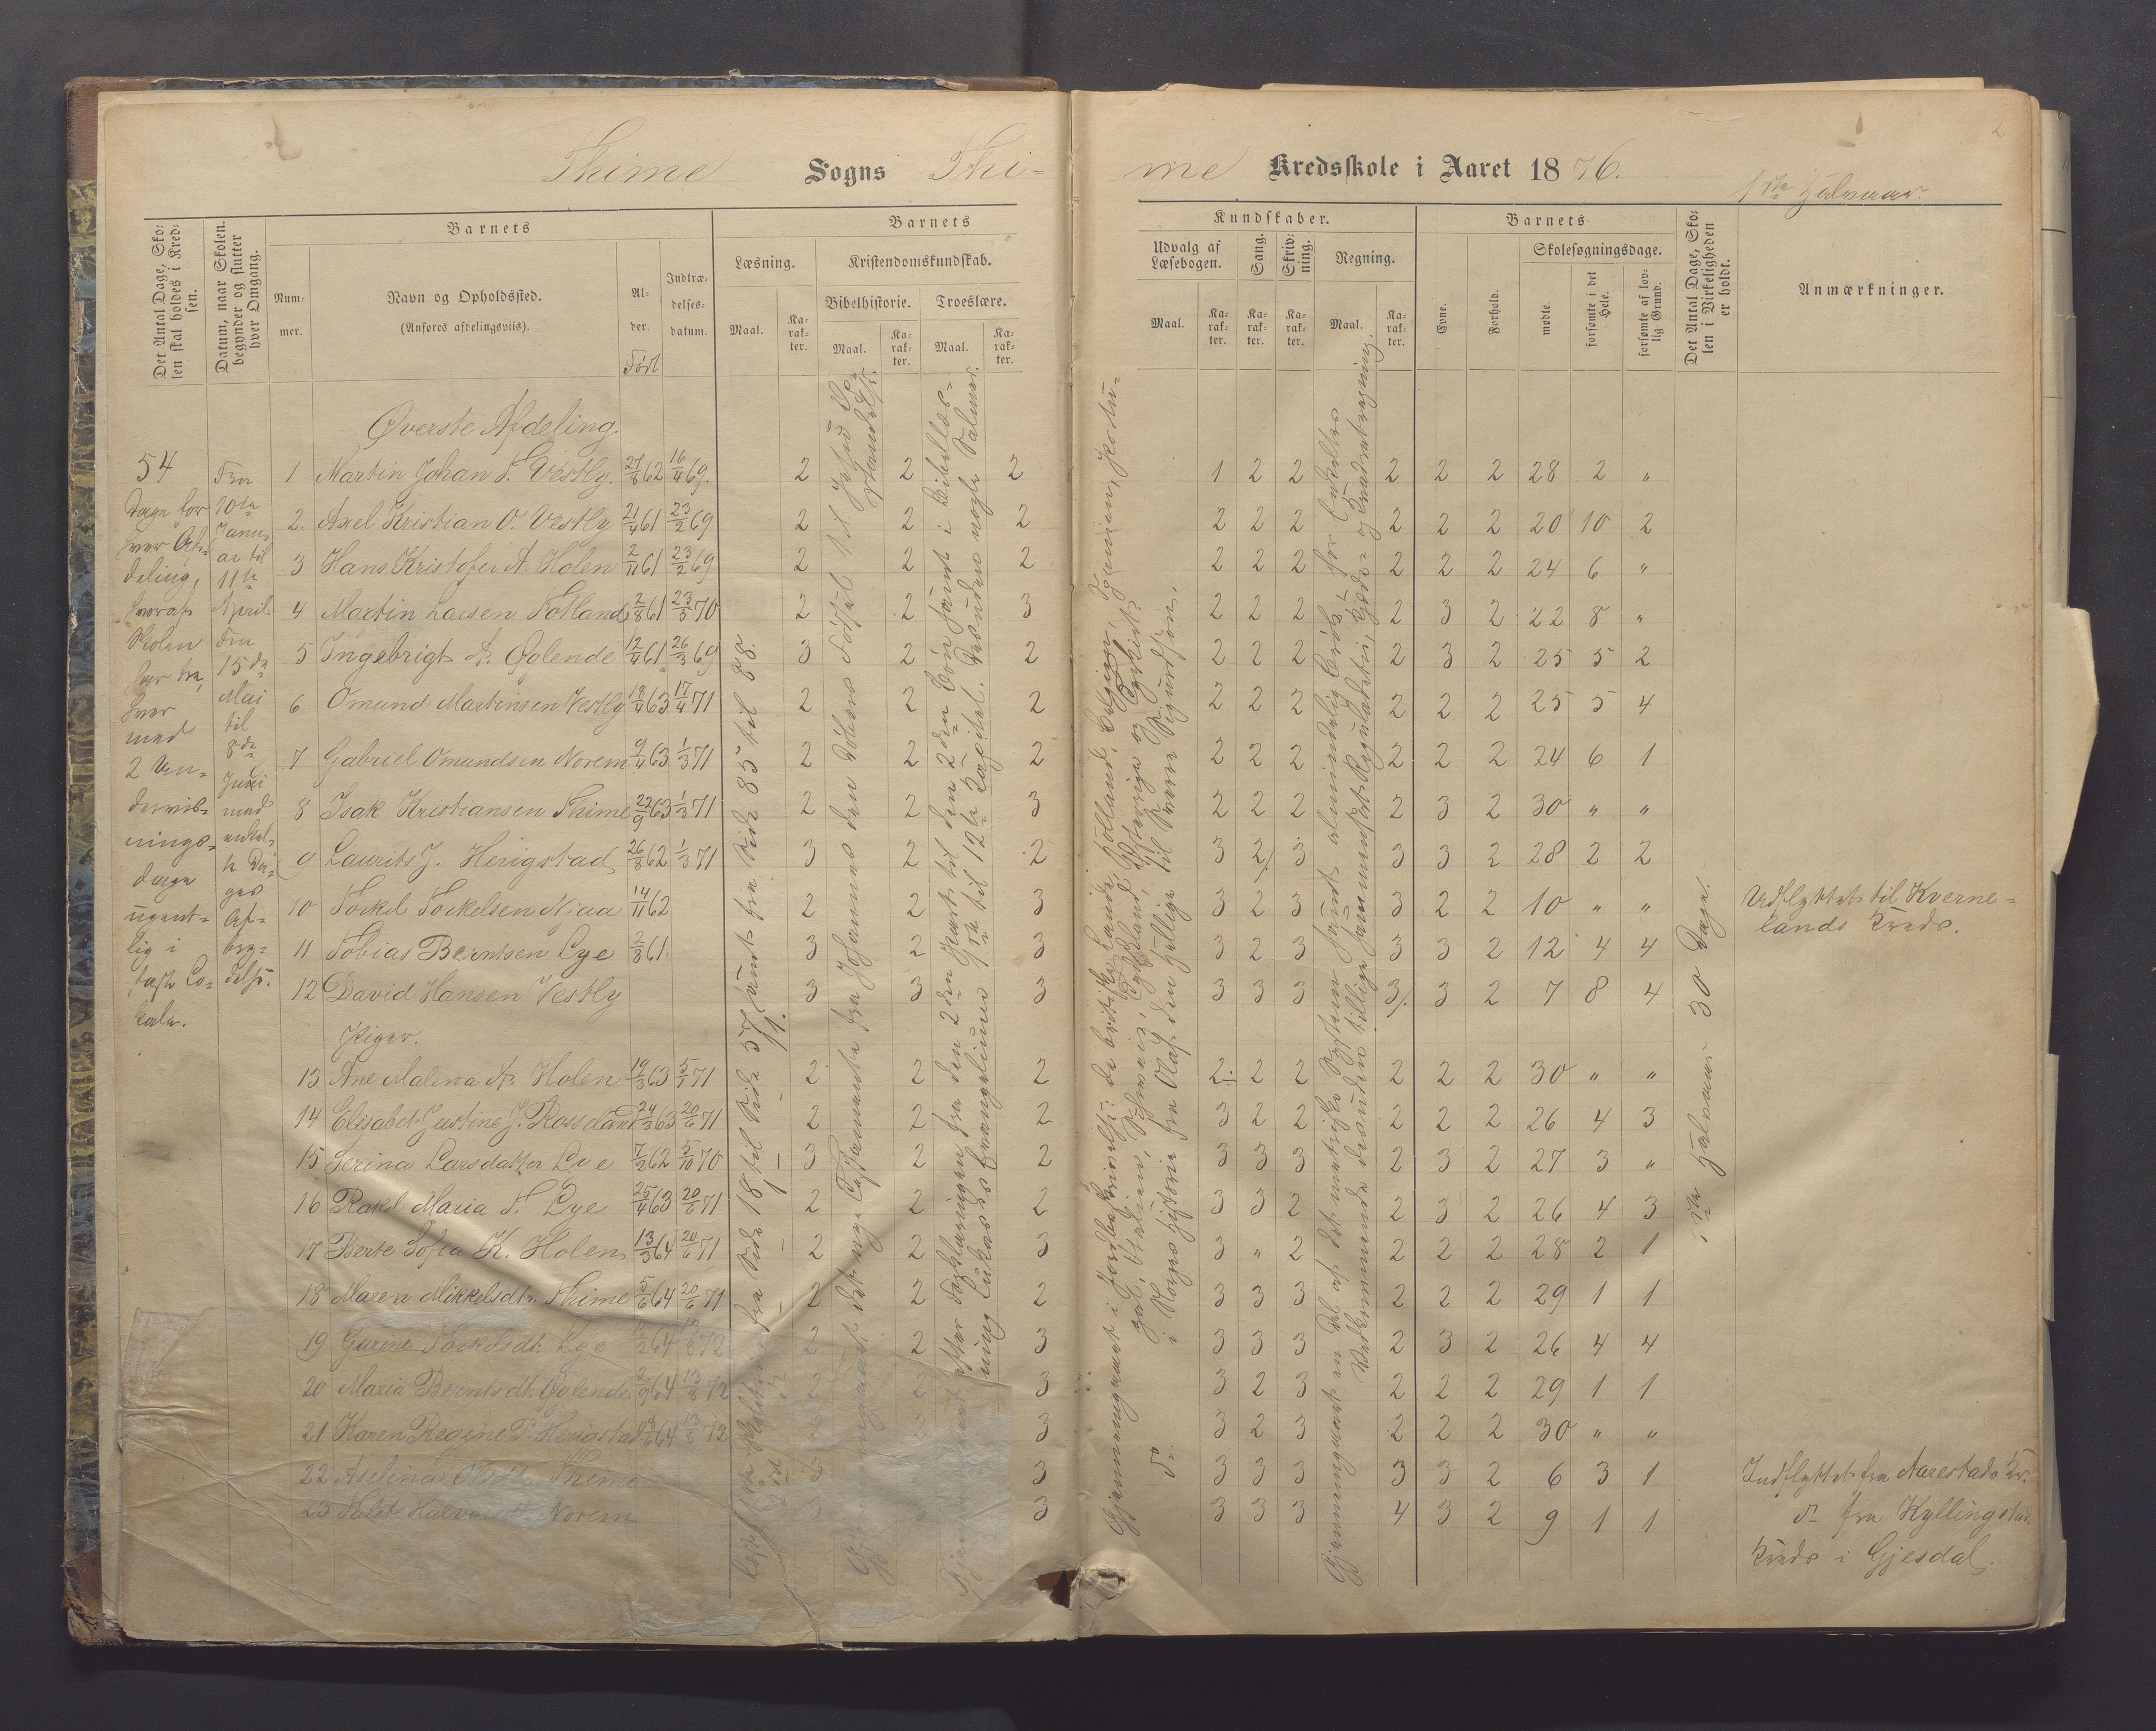 2
Thime Sogns Thi-
me Kredsskole i Aaret 1876.
1ste Halvaar.
Det Antal Dage, Sko-
len skal holdes i Kred-
sen.
Datum, naar Skolen
begynder og slutter
hver Omgang.
Barnets
Num-
mer.
Navn og Opholdssted.
(Anføres afdelingsviis).
Al-
der.
Født
Indtræ-
delses-
datum.
Barnets
Læsning.
Maal.
Ka-
rak-
ter.
Kristendomskundskab.
Bibelhistorie.
Maal.
Ka-
rak-
ter.
Troeslære.
Maal.
Ka-
rak-
ter.
Kundskaber.
Udvalg af
Læsebogen.
Maal.
Ka-
rak-
ter.
Sang.
Ka-
rak-
ter.
Skriv-
ning.
Ka-
rak-
ter.
Regning.
Maal.
Ka-
rak-
ter.
Barnets
Evne.
Forhold.
Skolesøgningsdage.
mødte.
forsømte i det
Hele.
forsømte af lov-
lig Grund.
Det Antal Dage, Sko-
len i Virkeligheden
er holdt.
Anmærkninger.
54
Dage for
hver Af-
deling,
hvoraf
Skolen
har tre,
hver
med
2 Un-
dervis-
nings-
dage
ugent-
lig i
fast Lo-
kale.
Fra
10de
Janu-
ar til
11te
April.
Fra
15de
Mai
til
8de
Juni
med
enkel-
te Da-
ges
Af-
bry-
delse.
Øverste Afdeling.
1 Martin Johan T. Vestly. 27/8 62 16/4 69. 2 2 2 1 2 2 2 2 2 28 2 "
2. Axel Kristian O. Vestly 21/4 61 23/2 69 2 2 2 2 2 2 2 2 2 20 10 2
3 Hans Kristofer A. Holen 2/11 61 23/2 69 2 2 2 2 2 2 2 2 2 24 6 "
4 Martin Larsen Fotland 2/8 61 23/3 70 2 2 3 2 2 2 2 3 2 22 8 "
5 Ingebrigt A. Øglende 12/4 61 26/3 69 3 2 2 2 2 2 2 3 2 25 5 2
6 Omund Martinsen Vestly 18/4 63 17/4 71 2 2 2 2 2 2 2 2 2 25 5 4
7 Gabriel Omundsen Norem 9/4 63 1/3 71 2 2 2 2 2 2 2 2 2 24 6 1
8 Isak Kristiansen Thime 22/9 63 1/3 71 2 2 3 2 2 2 2 3 2 30 " "
9 Laurits J. Herigstad 26/8 62 1/3 71 3 2 2 3 2 3 3 3 2 28 2 2
10 Torkel Torkelsen Njaa 14/11 62 2 2 3 3 2 3 3 2 2 10 " " Udflyttet til Kverne-
lands Kreds.
11 Tobias Berntsen Lye 2/8 61. 3 2 3 3 2 3 3 3 2 12 4 4
12 David Hansen Vestly 3 3 3 3 3 3 3 3 2 7 8 4
Piger.
13 Ane Malena A. Holen 19/3 63 5/1 71 2 2 2 2 2 2 2 2 2 30 " "
14 Elisabet Justine J. Rosseland 24/3 63 20/6 71 2 2 2 3 2 2 2 2 2 26 4 3
15 Serina Larsdatter Lye 7/2 62 5/10 70 3 2 2 3 3 3 2 3 2 27 3 "
16 Rakel Maria T. Lye 25/4 63 20/6 71 2 2 2 3 3 2 2 3 2 26 4 3
17 Berte Sofia K. Holen 13/3 64 20/6 71 2 2 3 3 " 2 2 2 2 28 2 1
18 Maren Mikkelsdtr. Thime 5/6 64 20/6 71 2 2 2 3 3 3 2 2 2 29 1 1
19 Gurine Torkelsdt. Lye 64 72 2 2 3 3 3 3 2 3 2 26 4 4
20 Maria Berntsdt. Øglende 2/9 64 72 2 2 3 3 2 3 2 2 2 29 1 1
21 Karen Regine P. Herigstad 64 72 2 3 3 2 3 2 2 2 30 " "
22 Aselina Olsdt. Thime 3 3 3 3 3 3 3 2 6 3 1 Indflyttet fra Aarestads Kr.
23 Halvorsdt. Norem 3 3 3 3 3 4 3 2 9 1 1 do fra Kyllingstad
Kreds i Gjesdal.
fra Side 18 til Side 57 samt fra Side 85 til 88.
det nye Testamente fra Johannes den Døbers Fødsel til Jesu Op-
standelse.
efter Forklaringen fra den 2den Part til den 2den Bøn samt i Bibellæs-
ning Lukas's Evangelium 9de til 12te Kapitel. Desuden nogle Salmer.
Gjennemgaaet i Jordbeskrivelse: de britiske Lande, Holland, Belgien, Spanien, Portu-
gal, Italien, Schweiz, Tydskland, Østerrige og Tyrkiet.
do i Norges Historie fra Olaf den Hellige til Sverre Sigurdsøn.
Gjennemgaaet en Del af det metriske System samt almindelig Brøk, for Enkeltes
Vedkommende desuden tillige sammensat Reguladetri, Kjæde- og Kvadratregning.
1ste Halvaar 30 Dage.